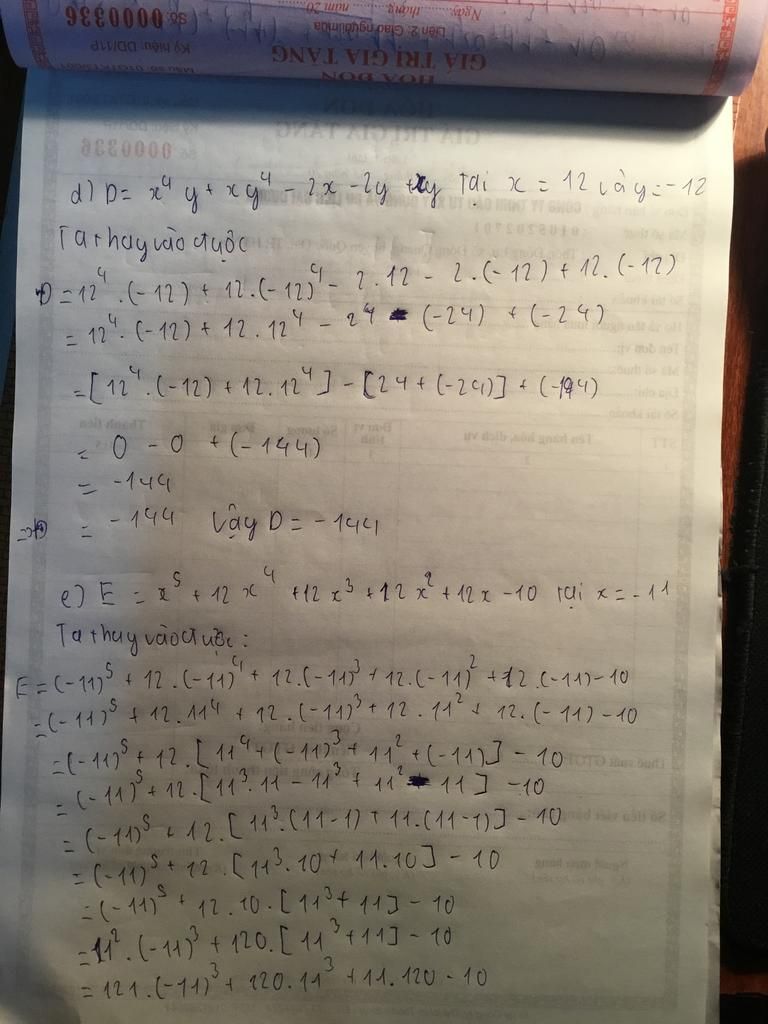 Ngày......... tháng......... năm 20
Liên 2: Giao người mua
Số: 0000336
GIÁ TRỊ GIA TĂNG
Ký hiệu: DD/11P
HÓA ĐƠN
d) D = x⁴y + xy⁴ - 2x - 2y + xy Tại x = 12 và y = -12
Ta thay vào được
D = 12⁴.(-12) + 12.(-12)⁴ - 2.12 - 2.(-12) + 12.(-12)
= 12⁴.(-12) + 12.12⁴ - 24 - (-24) + (-24)
= [12⁴.(-12) + 12.12⁴] - [24 + (-24)] + (-144)
= 0 - 0 + (-144)
= -144
=> D = -144 Vậy D = -144
e) E = x⁵ + 12x⁴ + 12x³ + 12x² + 12x - 10 Tại x = -11
Ta thay vào được:
E = (-11)⁵ + 12.(-11)⁴ + 12.(-11)³ + 12.(-11)² + 12.(-11) - 10
= (-11)⁵ + 12.11⁴ + 12.(-11)³ + 12.11² + 12.(-11) - 10
= (-11)⁵ + 12.[11⁴ + (-11)³ + 11² + (-11)] - 10
= (-11)⁵ + 12.[11³.11 - 11³ + 11² - 11] - 10
= (-11)⁵ + 12.[11³.(11-1) + 11.(11-1)] - 10
= (-11)⁵ + 12.[11³.10 + 11.10] - 10
= (-11)⁵ + 12.10.[11³ + 11] - 10
= 11².(-11)³ + 120.[11³ + 11] - 10
= 121.(-11)³ + 120.11³ + 11.120 - 10